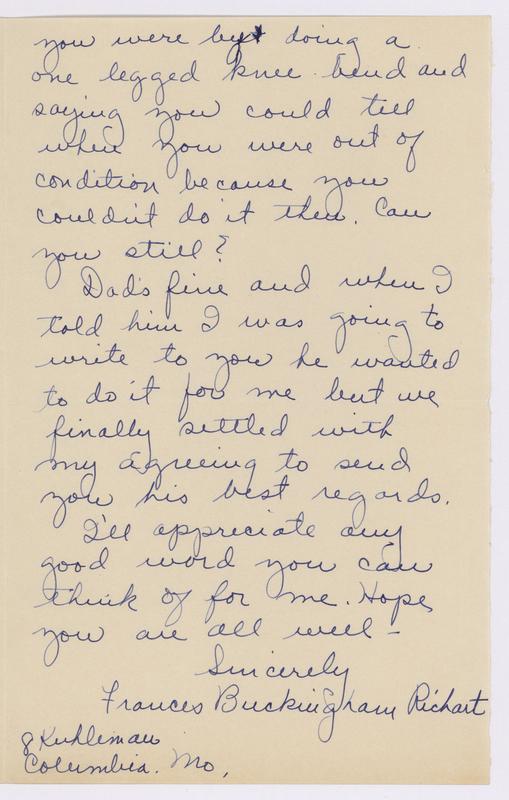 you were by doing a
one legged knee bend and
saying you could tell
when you were out of
condition because you
couldn't do it then. Can
you still?
Dad's fine and when I
told him I was going to
write to you he wanted
to do it for me but we
finally settled with
my agreeing to send
you his best regards.
I'll appreciate any
good word you can
think of for me. Hope
you are all well -
Sincerely
Frances Buckingham Richart
8 Kuhlman
Columbia. Mo,